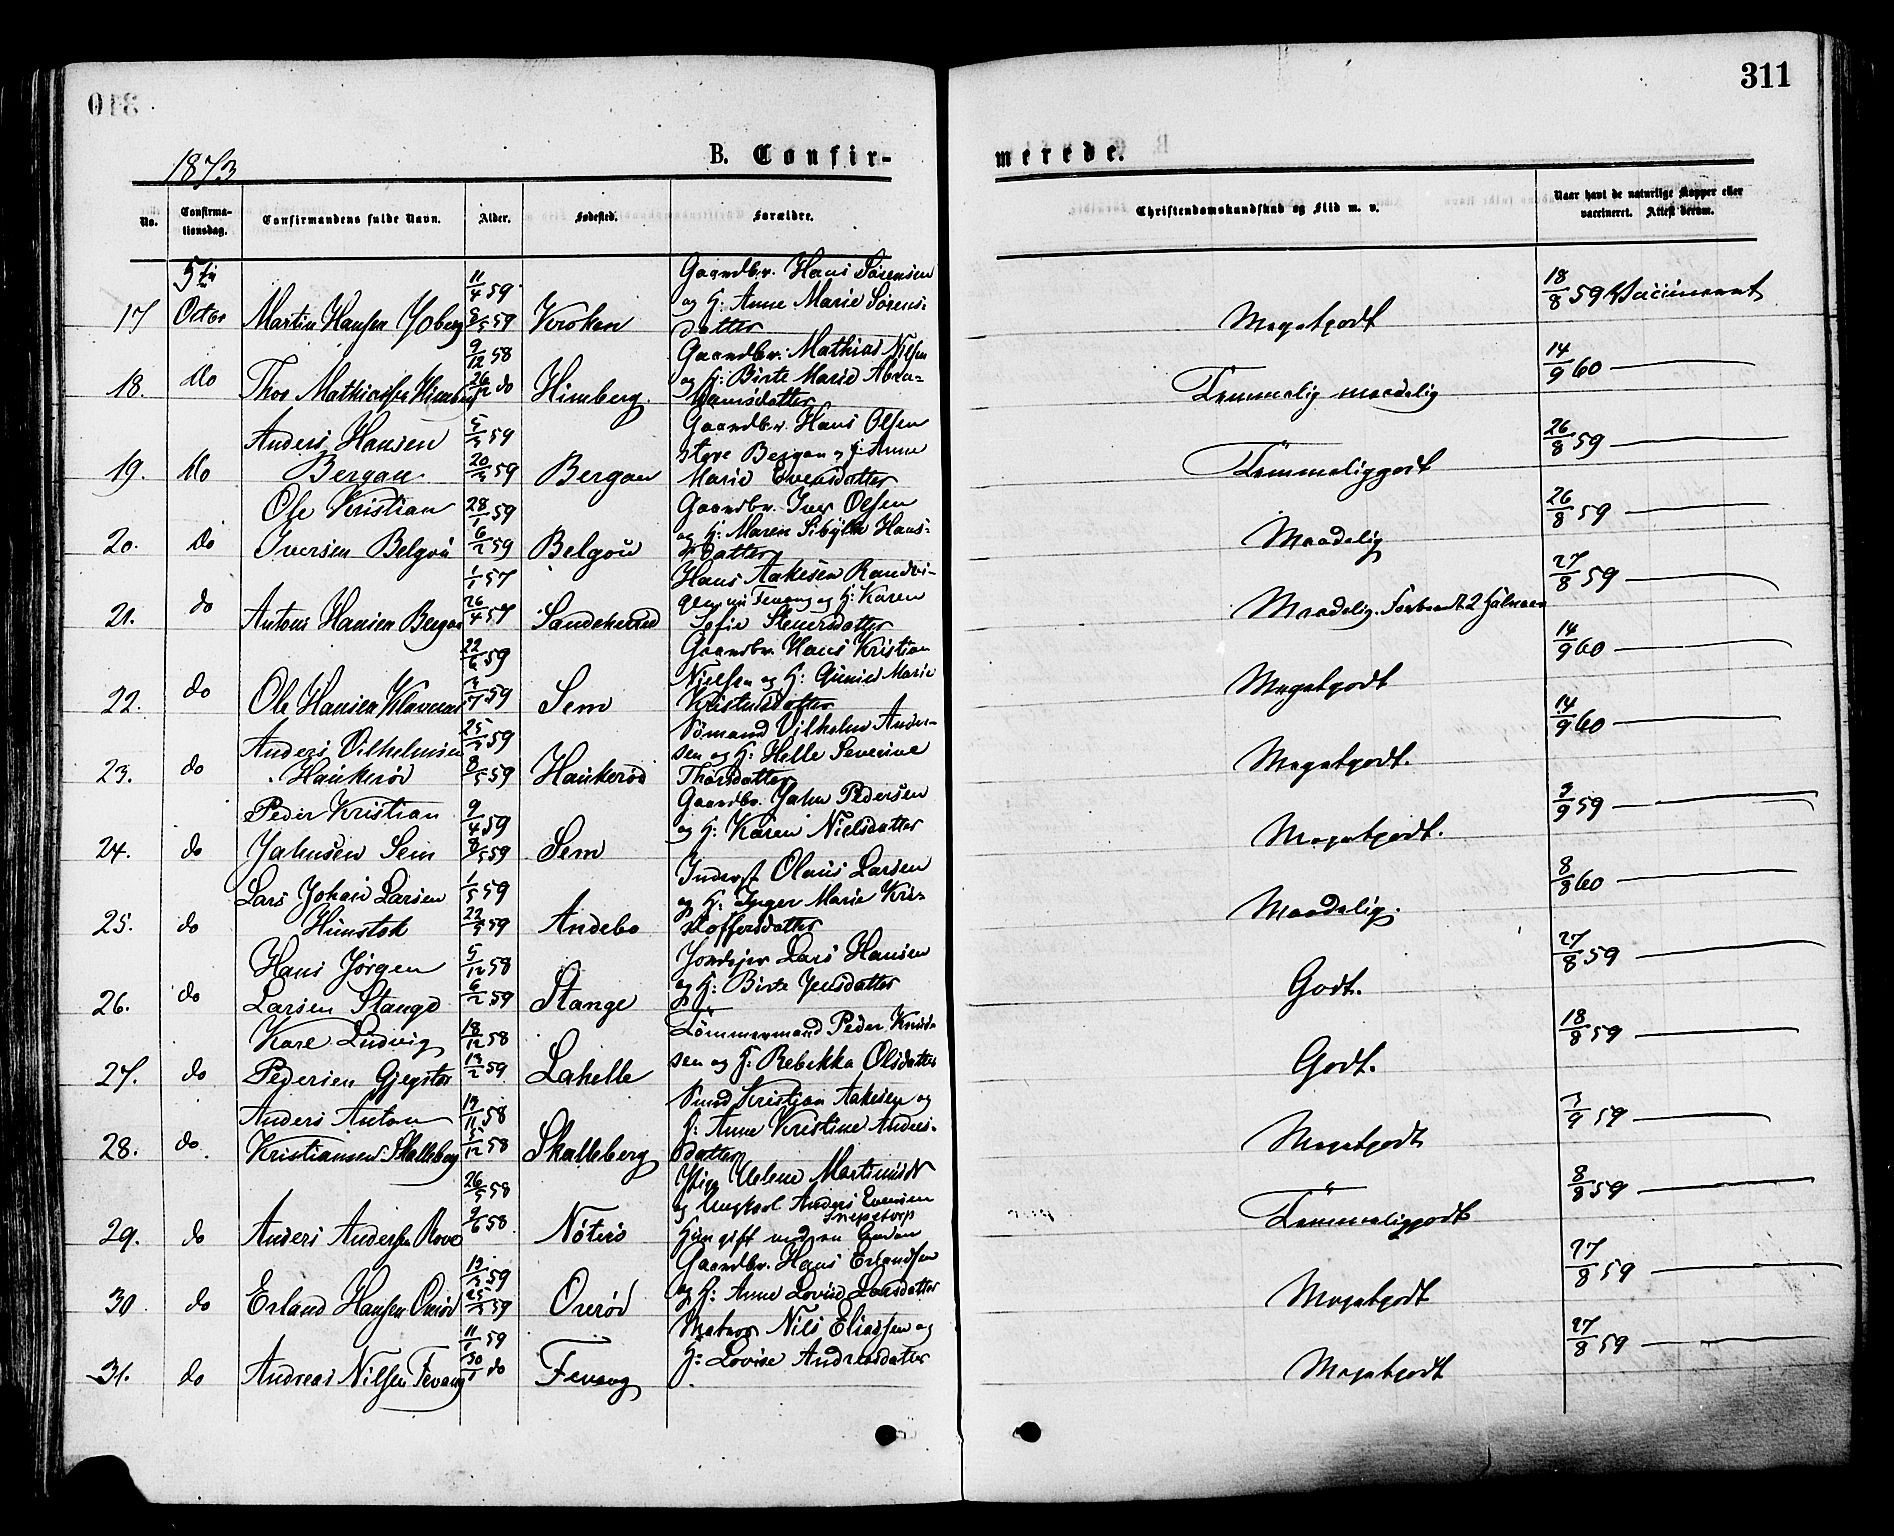 311
1873
B. Confir-
merede.
No.
Confirma-
tionsdag.
Confirmandens fulde Navn.
Alder.
Fødested.
Forældre.
Christendomskundskab og Flid m. v.
Naar havt de naturlige Kopper eller
vaccineret. Attest derom.
5te 11/4 59 Gaardbr. Hans Sørensen
17 Octbr Martin Hansen Hoberg 8/5 59 Kroken og H: Anne Marie Sørens-
datter Megetgodt 18/8 59 Vaccineret
9/12 58 Gaardbr. Mathias Nilsen
18. Do Thor Mathiassen Himberg 26/12 do Himberg. og H: Birte Marie Abra-
hamsdatter Temmelig maadelig 14/9 60
Anders Hansen 5/3 59 Gaardbr. Hans Olsen
19. Do Bergan 20/3 59 Bergan Marie Evensdatter Temmeliggodt 26/8 59
Ole Kristian 28/1 59 Gaardbr. Iver Olsen
20. Do Iversen Belgou 6/2 59 Belgou og H: Maren Sibylla Hans-
datter Maadelig 26/8 59
1/1 57 Hans Aakesen
21. do Antons Hansen Bergan 26/4 57 og H: Karen
Sofie Maadelig. 27/8 59
22/6 59 Gaardbr. Hans Kristian
22. do Ole Hansen Klavenes 3/7 59 Sem Nielsen og H: Marie
Megetgodt 14/9 60
Anders Vilhelmsen 25/3 59 Sømand Vilhelm Ander-
23. do Haukerød 8/5 59 Haukerød sen og H: Helle Severine
Thorsdatter Megetgodt. 14/9 60
Peder Kristian 9/4 59 Gaardbr. Jahn Pedersen
24. do Jahnsen Sem 8/5 59 Sem og H: Karen Nielsdatter Megetgodt. 3/9 59
Lars Johan Larsen 1/5 59 Inderst Olaus Larsen
25. do Himstok 22/5 59 Andebo og H: Inger Marie Kri-
stoffersdatter Maadelig. 8/8 60
Hans Jørgen 5/12 58 Lars Hansen
26. do Larsen Stange 6/2 59 Stange og H: Birte Jensdatter Godt. 27/8 59
Karl Ludvig 18/12 58 Tømmermand Peder Knud-
27. do Pedersen 13/2 59 Lahelle sen og H: Rebekka Olsdatter Godt. 18/8 59
Anders Anton 13/11 58 Smed Kristian Aakesen og
28. do Kristiansen Skalleberg 5/12 58 Skalleberg H: Anne Kristine Anders-
datter Megetgodt 3/9 59
26/5 58 Pige Helene
29. do Anders Andersen Rove 9/6 58 Nøterø og Ungkarl Anders Evensen
Hun gift med en anden Temmeliggodt 8/8 59
13/3 59 Gaardbr. Hans Erlandsen
30 do Erland Hansen Orerød 25/3 59 Orerød og H: Anne Lovise Larsdatter Megetgodt 27/8 59
11/1 59 Matros Nils Eliassen og
31. do Andreas Nilsen Fevang 30/1 do Fevang H: Lovise Andreasdatter Megetgodt 27/8 59